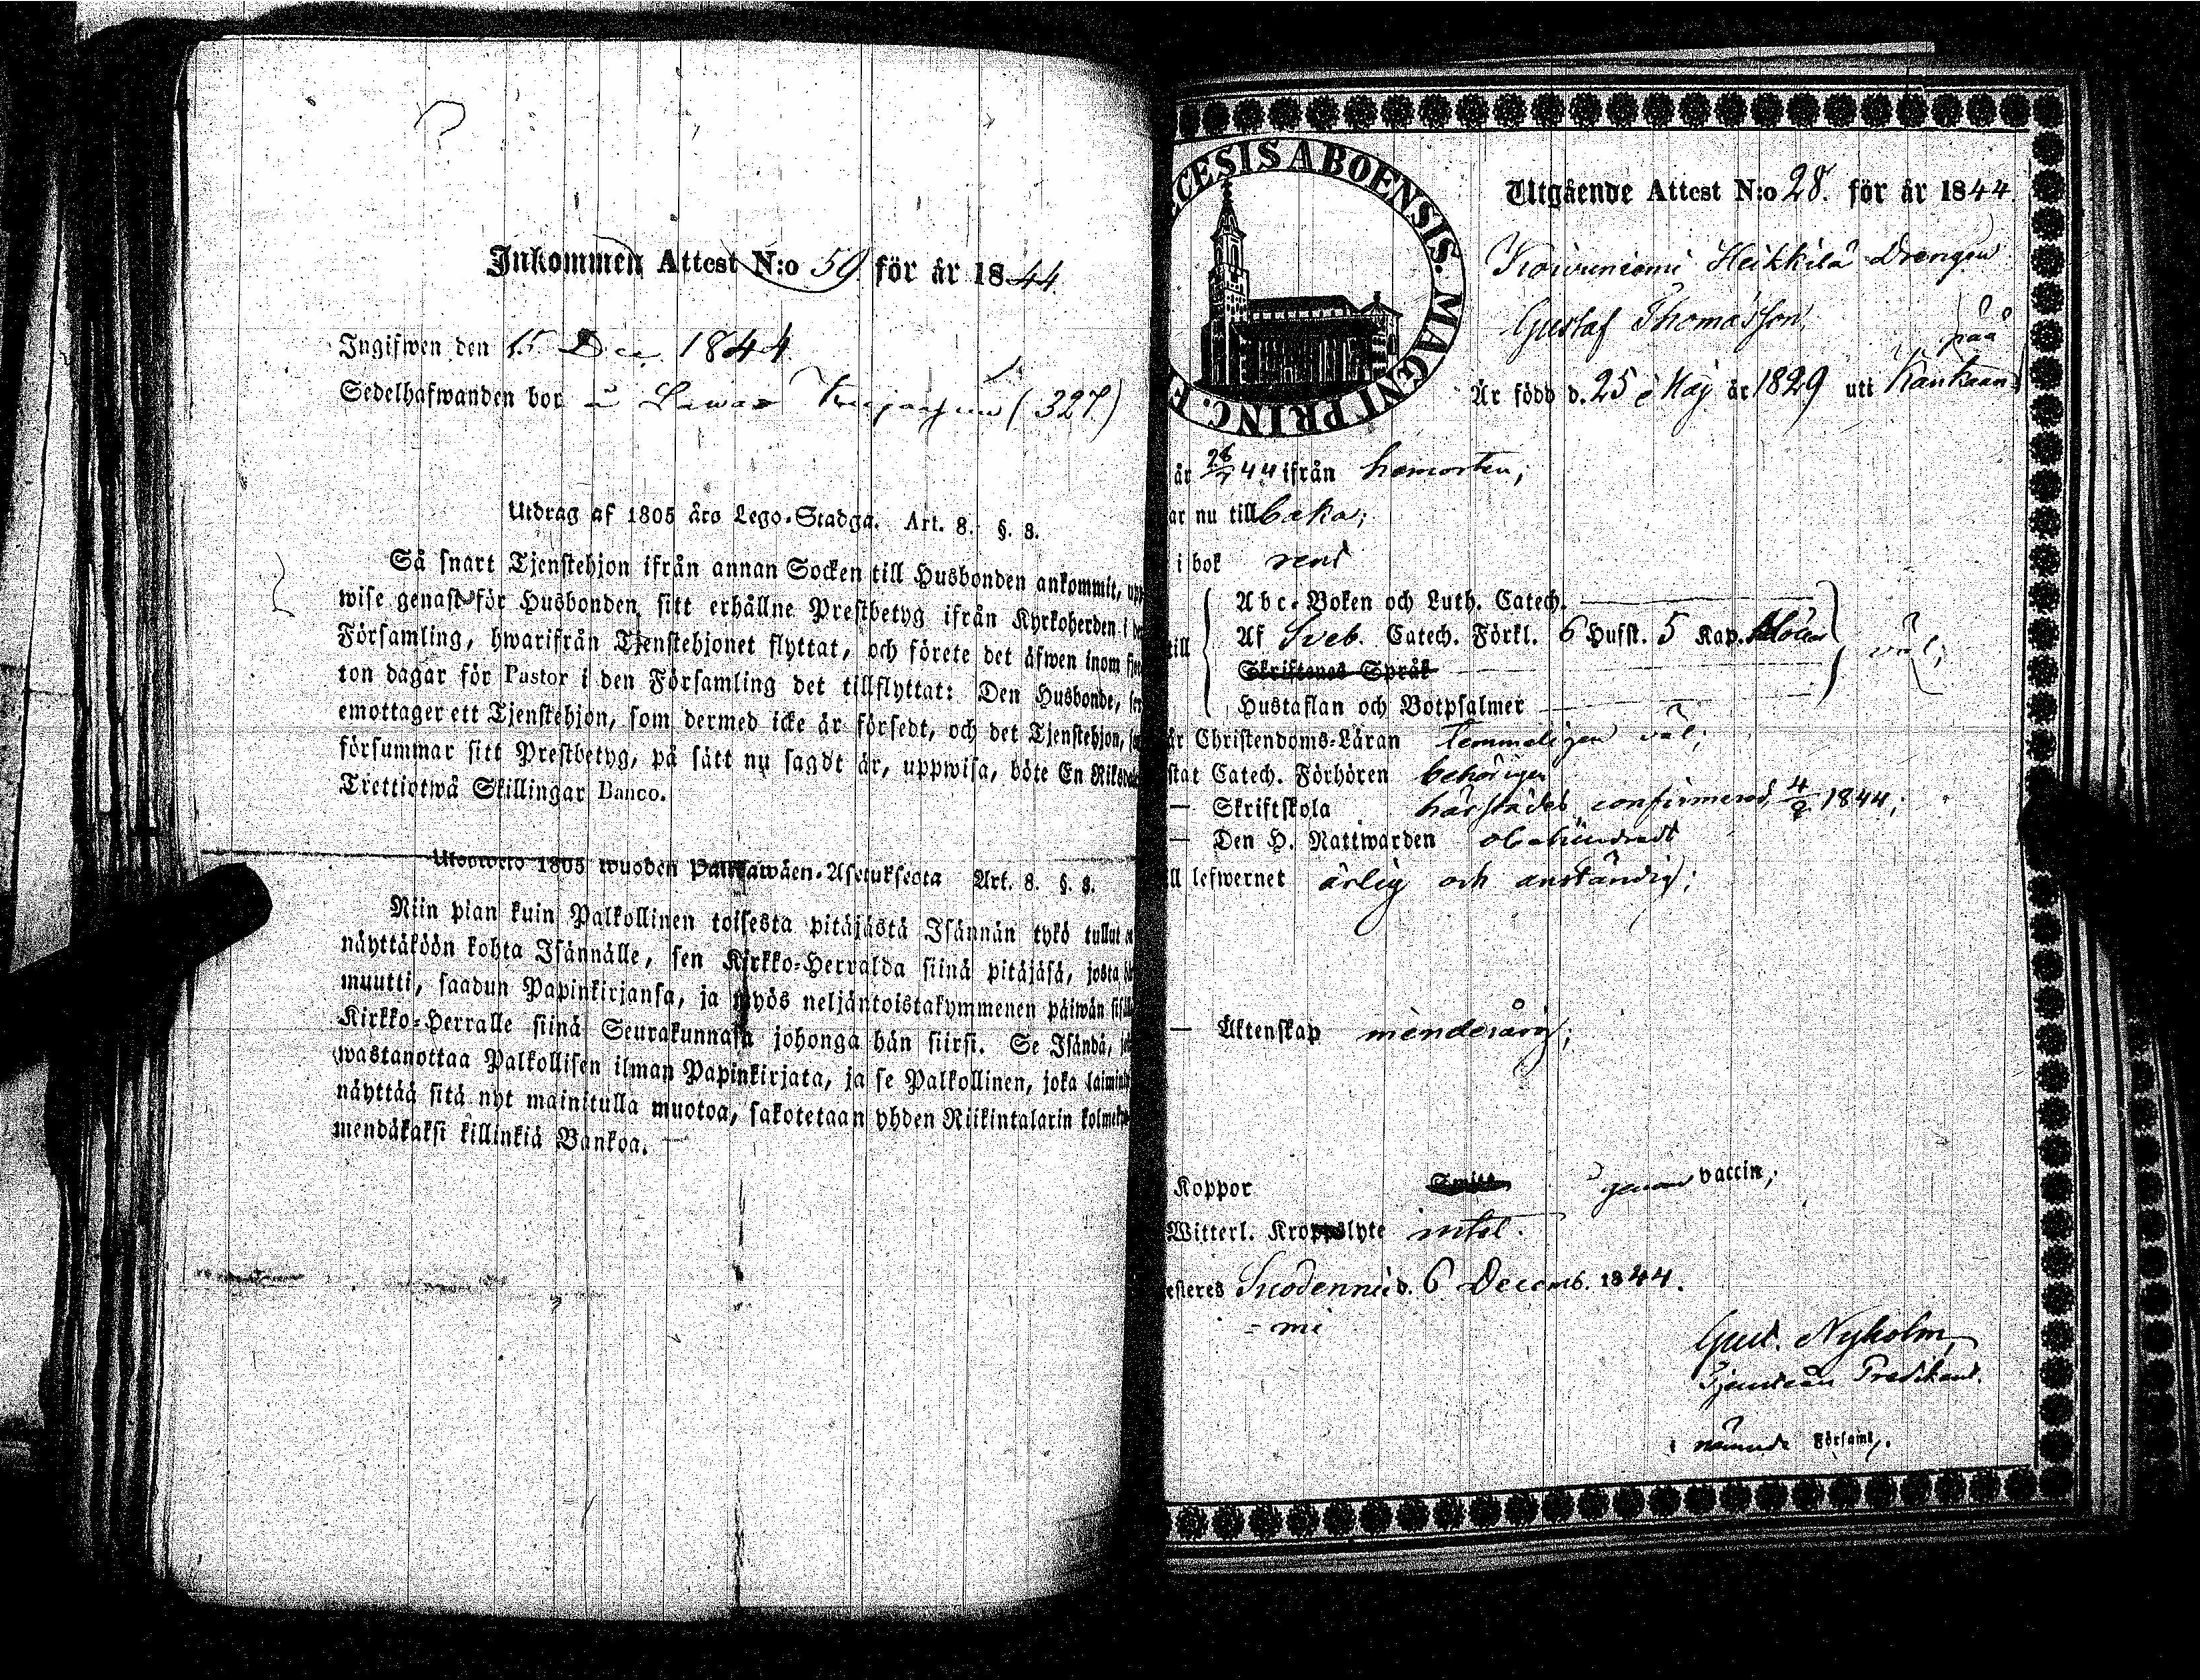 Inkommen Attest N:o 59 för år 1844.
Ingifwen den 15 Dec. 1844.
Sedelhafwanden bor (327.)
Utdrag af 1805 års Lego-Stadga. Art. 8. §. 8.
Så snart Tjenstehjon ifrån annan Socken till Husbonden ankommit, upp
wise genast för Husbonden sitt erhållne Prestbetyg ifrån Kyrkoherden i
Församling, hwarifrån Tjenstehjonet flyttat, och förete det äfwen inom
ton dagar för Pastor i den Församling det tillflyttat: Den Husbonde,
emottager ett Tjenstehjon, som dermed icke är försedt, och det Tjenstehjon,
försummar sitt Prestbetyg, på sätt nu sagdt är, uppwisa, böte En
Trettiotwå Skillingar Banco.
1805 wuoden Palkkawäen-Asetuksesta Art. 8. §. 8.
Niin pian kuin Palkollinen toisesta pitäjästä Isännän tykö tullut
näyttäköön kohta Isännälle, sen Kirkko-Herralda siinä pitäjäsä, josta
muutti, saadun Papinkirjansa, ja myös neljäntoistakymmenen päiwän
Kirkko-Herralle siinä Seurakunnasa johonga hän siirsi. Se Isändä,
wastanottaa Palkollisen ilman Papinkirjata, ja se Palkollinen, joka
näyttää sitä nyt mainitulla muotoa, sakotetaan yhden Riikintalarin
mendäkaksi killinkiä Bankoa.
CESIS ABOENSIS. MAGNI PRINC. F
Utgående Attest N:o 28. för år 1844.
Heikkilä Drengen
Gustaf Thomasson
på
Är född d. 25 Maj år 1829 uti Kankaan
år 28/7 44 ifrån hemorten;
ar nu tillbaka;
i bok rent
Abc-Boken och Luth. Catech.
till Af Sveb. Catech. Förkl. 6 Hufst. 5 Kap. väl;
Skriftenes Språk
Hustaflan och Botpsalmer
är Christendoms-Läran temmeligen väl;
stat Catech. Förhören behörigen
— Skriftskola härstädes confirmerad 1844;
— Den H. Nattwarden obehindradt
ll lefwernet ärlig och anständig;
— Äktenskap minderårig;
Koppor genom vaccin;
Witterl. Kroppslyte intet.
esteres Suodennie d. 6 Decemb. 1844.
= mi
Gust. Nyholm,
Predikant.
i nämnde Församl.